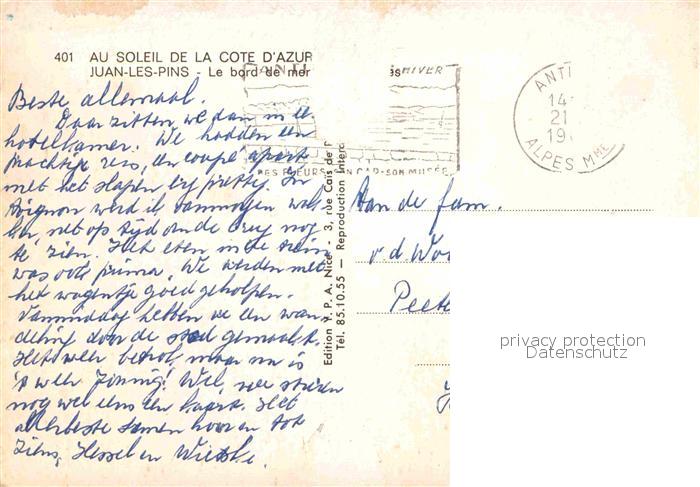 401 AU SOLEIL DE LA COTE D'AZUR
JUAN-LES-PINS - Le bord de mer
Beste allemaal.
Daar zitten we dan in de
hotelkamer. We hadden een
prachtige reis, een coupé apart
met het slapen erg prettig. In
Avignon werd ik vanmorgen wak-
ker, net op tijd om de brug nog
te zien. Het eten in de trein
was ook prima. We werden met
het wagentje goed geholpen.
Vanmiddag hebben we een wan-
deling door de stad gemaakt.
Het weer betrok, maar nu is
't weer zonnig! Wel, we sturen
nog wel eens een kaart. Het
allerbeste samen hoor en tot
ziens, Hessel en Wietske.
Edition Y.P.A. Nice - 3, rue Cais de
Tél. 85.10.55 - Reproduction Interd
HIVER
DES FLEURS SON CAP-SON MUSÉE
ANTI
14
21
19
ALPES MME
Aan de fam.
v.d. Wo
Peete
privacy protection
Datenschutz